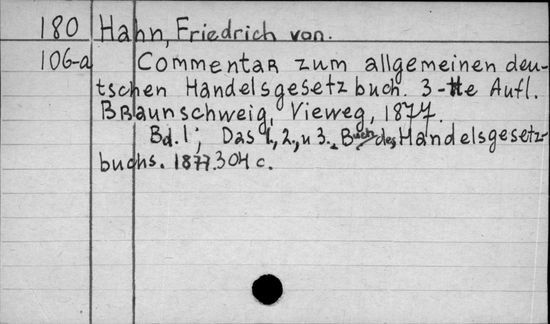 180 Hahn, Friedrich von.
106-a Commentar zum allgemeinen deu-
tschen Handelsgesetzbuch. 3-tte Aufl.
Braunschweig, Vieweg, 1877.
Bd. 1; Das 1., 2., u 3. Buch des Handelsgesetz-
buchs. 1877. 304 c.